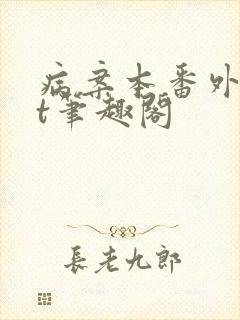 病案本番外
t笔趣阁
長老九郎